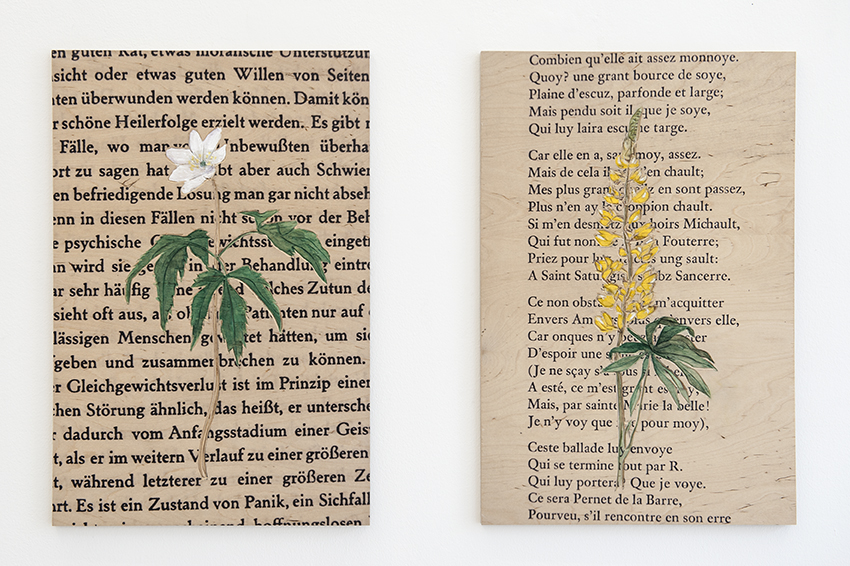 en guten Rat, etwas moralische Unterstützun
sicht oder etwas guten Willen von Seiten
ten überwunden werden können. Damit kön
r schöne Heilerfolge erzielt werden. Es gibt
Fälle, wo man Unbewußten überha
ort zu sagen hat aber auch Schwier
en befriedigende Lösung man gar nicht abseh
enn in diesen Fällen nicht schon vor der Beh
e psychische eingetr
wird sie in der Behandlung eintre
ar sehr häufig welches Zutun de
sieht oft aus, als Patienten nur auf
lässigen Menschen gewartet hätten, um sic
geben und zusammenbrechen zu können.
er Gleichgewichtsverlust ist im Prinzip einer
chen Störung ähnlich, das heißt, er untersche
dadurch vom Anfangsstadium einer Geis
t, als er im weitern Verlauf zu einer größeren
t, während letzterer zu einer größeren Ze
hrt. Es ist ein Zustand von Panik, ein Sichfall
hoffnungslosen
Combien qu'elle ait assez monnoye.
Quoy? une grant bource de soye,
Plaine d'escuz, parfonde et large;
Mais pendu soit il, que je soye,
Qui luy laira escu ne targe.
Car elle en a, sans moy, assez.
Mais de cela il n'en chault;
Mes plus grans en sont passez,
Plus n'en ay le croppion chault.
Si m'en desmetz aux hoirs Michault,
Qui fut nommé Fouterre;
Priez pour luy, ung sault:
A Saint Sancerre.
Ce non m'acquitter
Envers envers elle,
Car onques n'y
D'espoir une
(Je ne sçay s'a
A esté, ce m'est grant
Mais, par sainte Marie la belle!
Je n'y voy que pour moy),
Ceste ballade luy envoye
Qui se termine tout par R.
Qui luy portera? Que je voye.
Ce sera Pernet de la Barre,
Pourveu, s'il rencontre en son erre